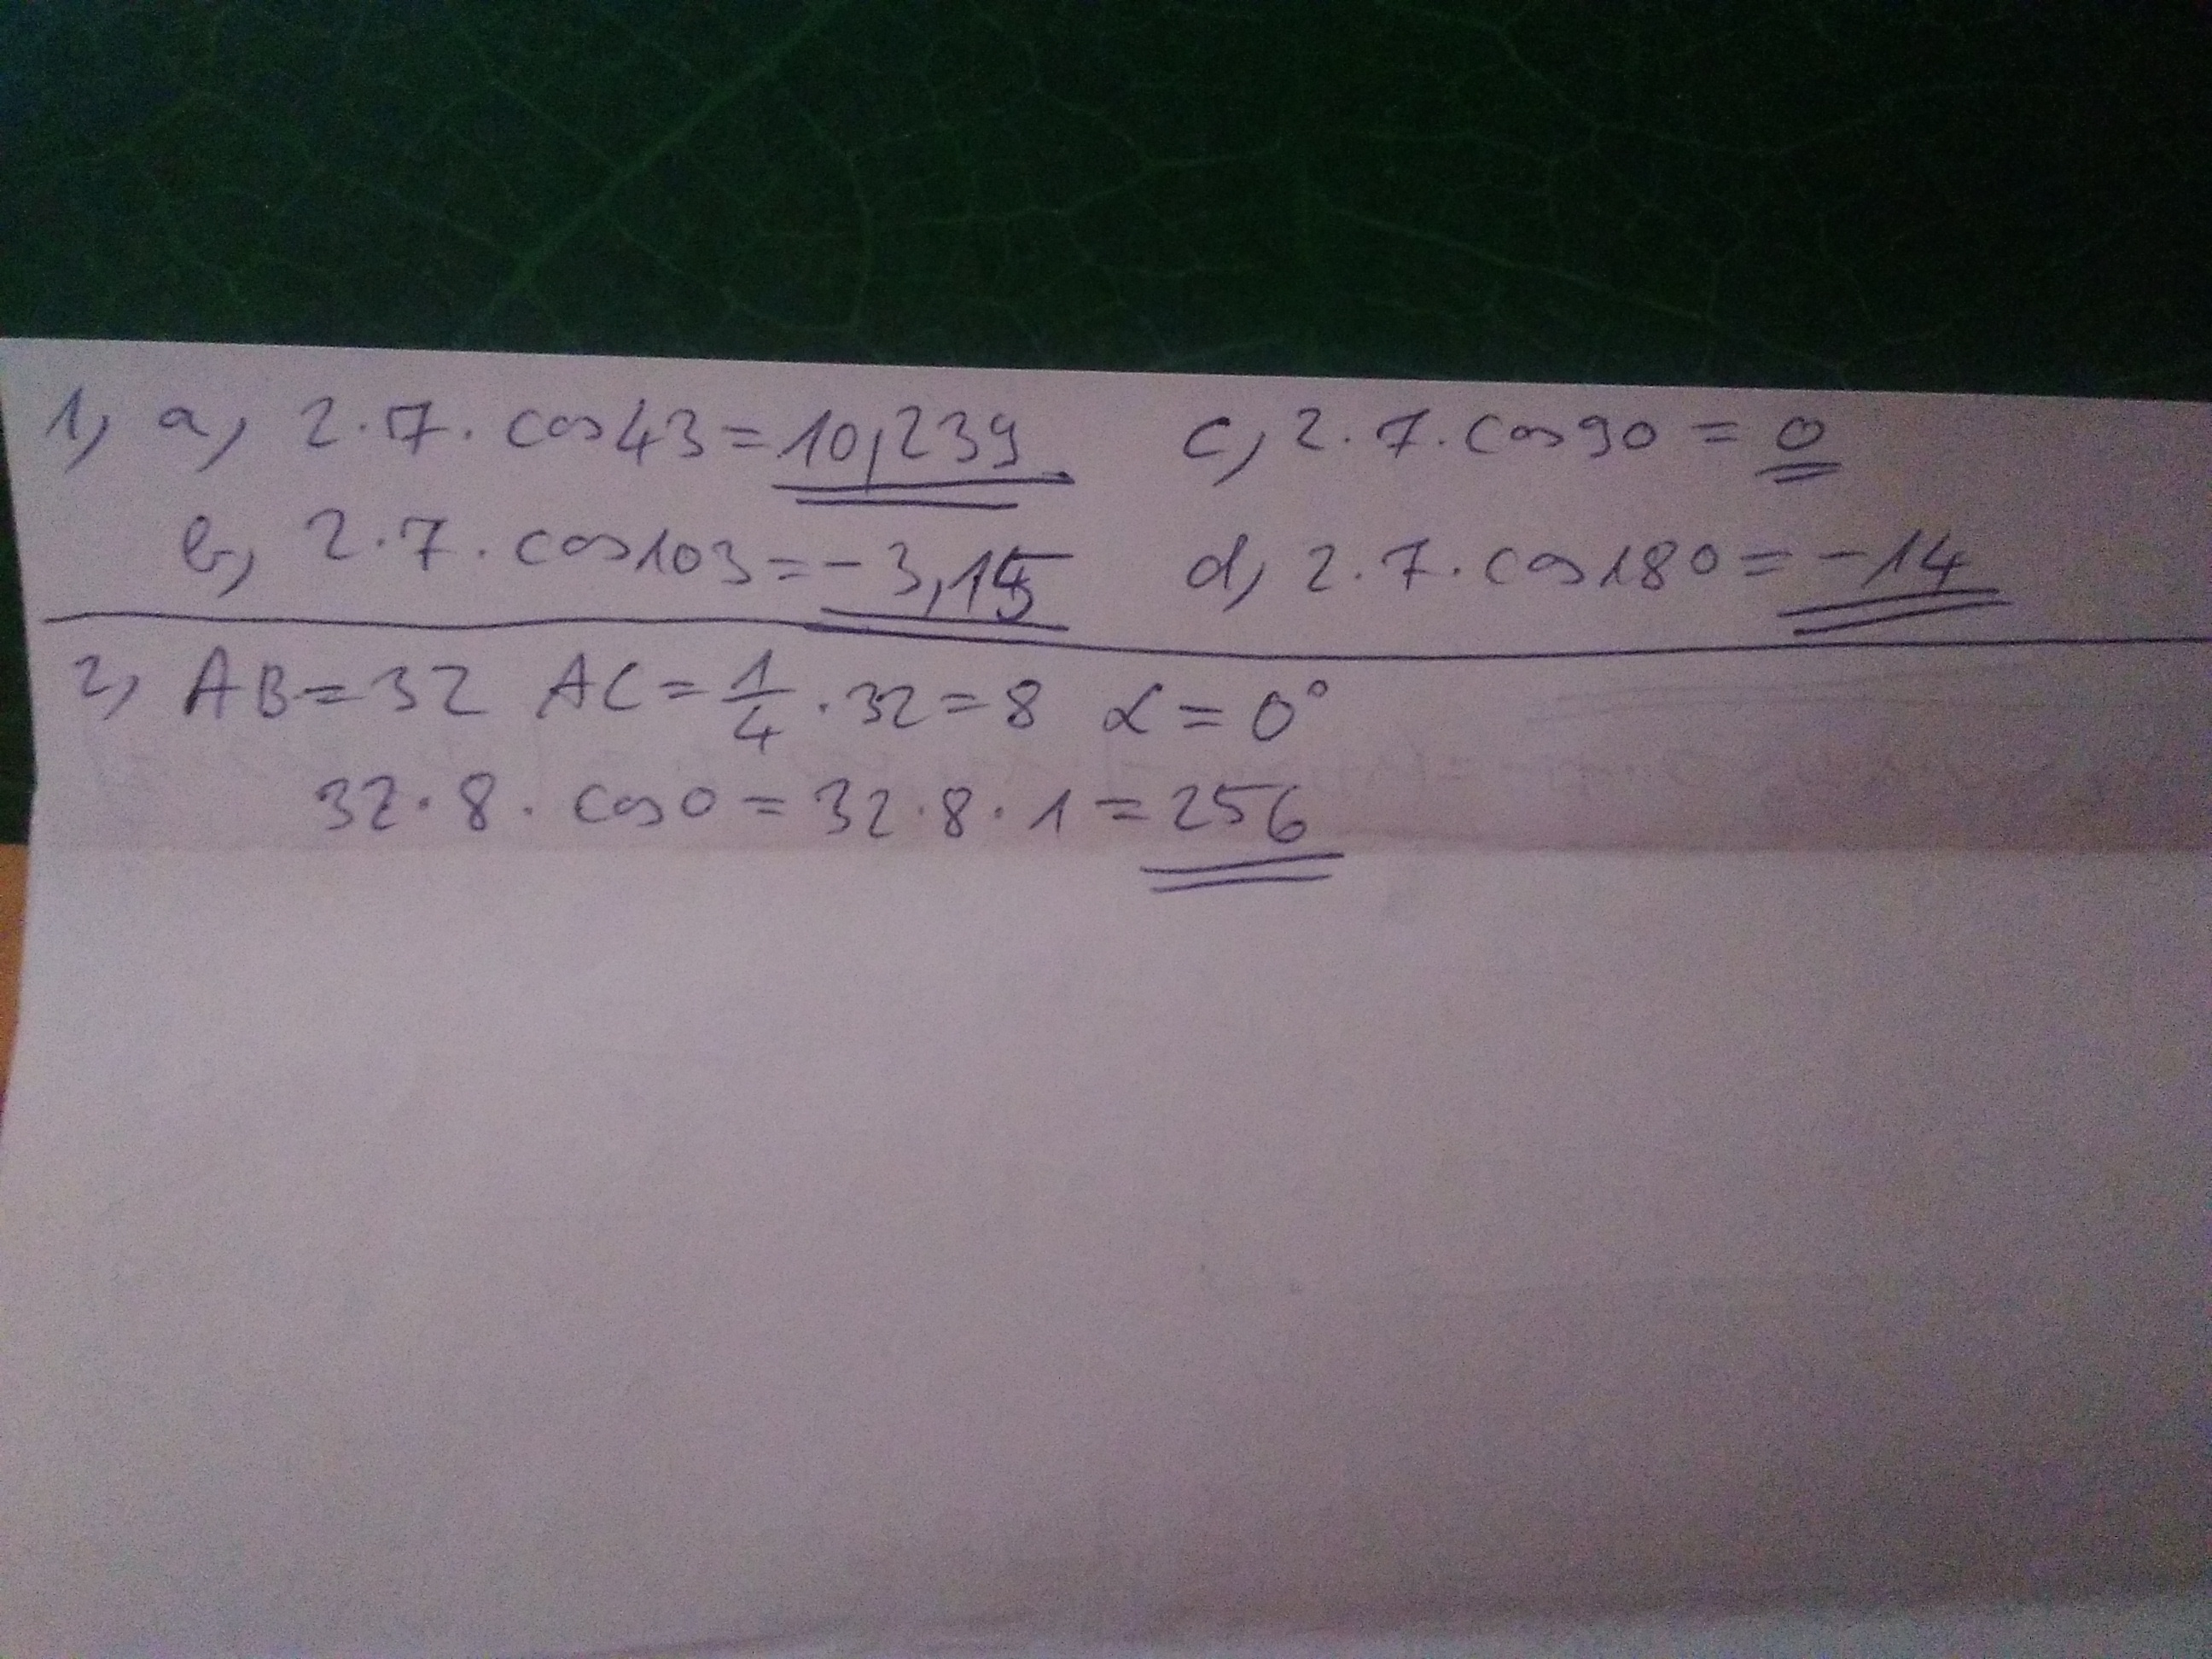 1, a, 2·7·cos43=10,239 c, 2·7·cos90=0
b, 2·7·cos103=-3,15 d, 2·7·cos180=-14
2, AB=32 AC=1/4·32=8 α=0°
32·8·cos0=32·8·1=256